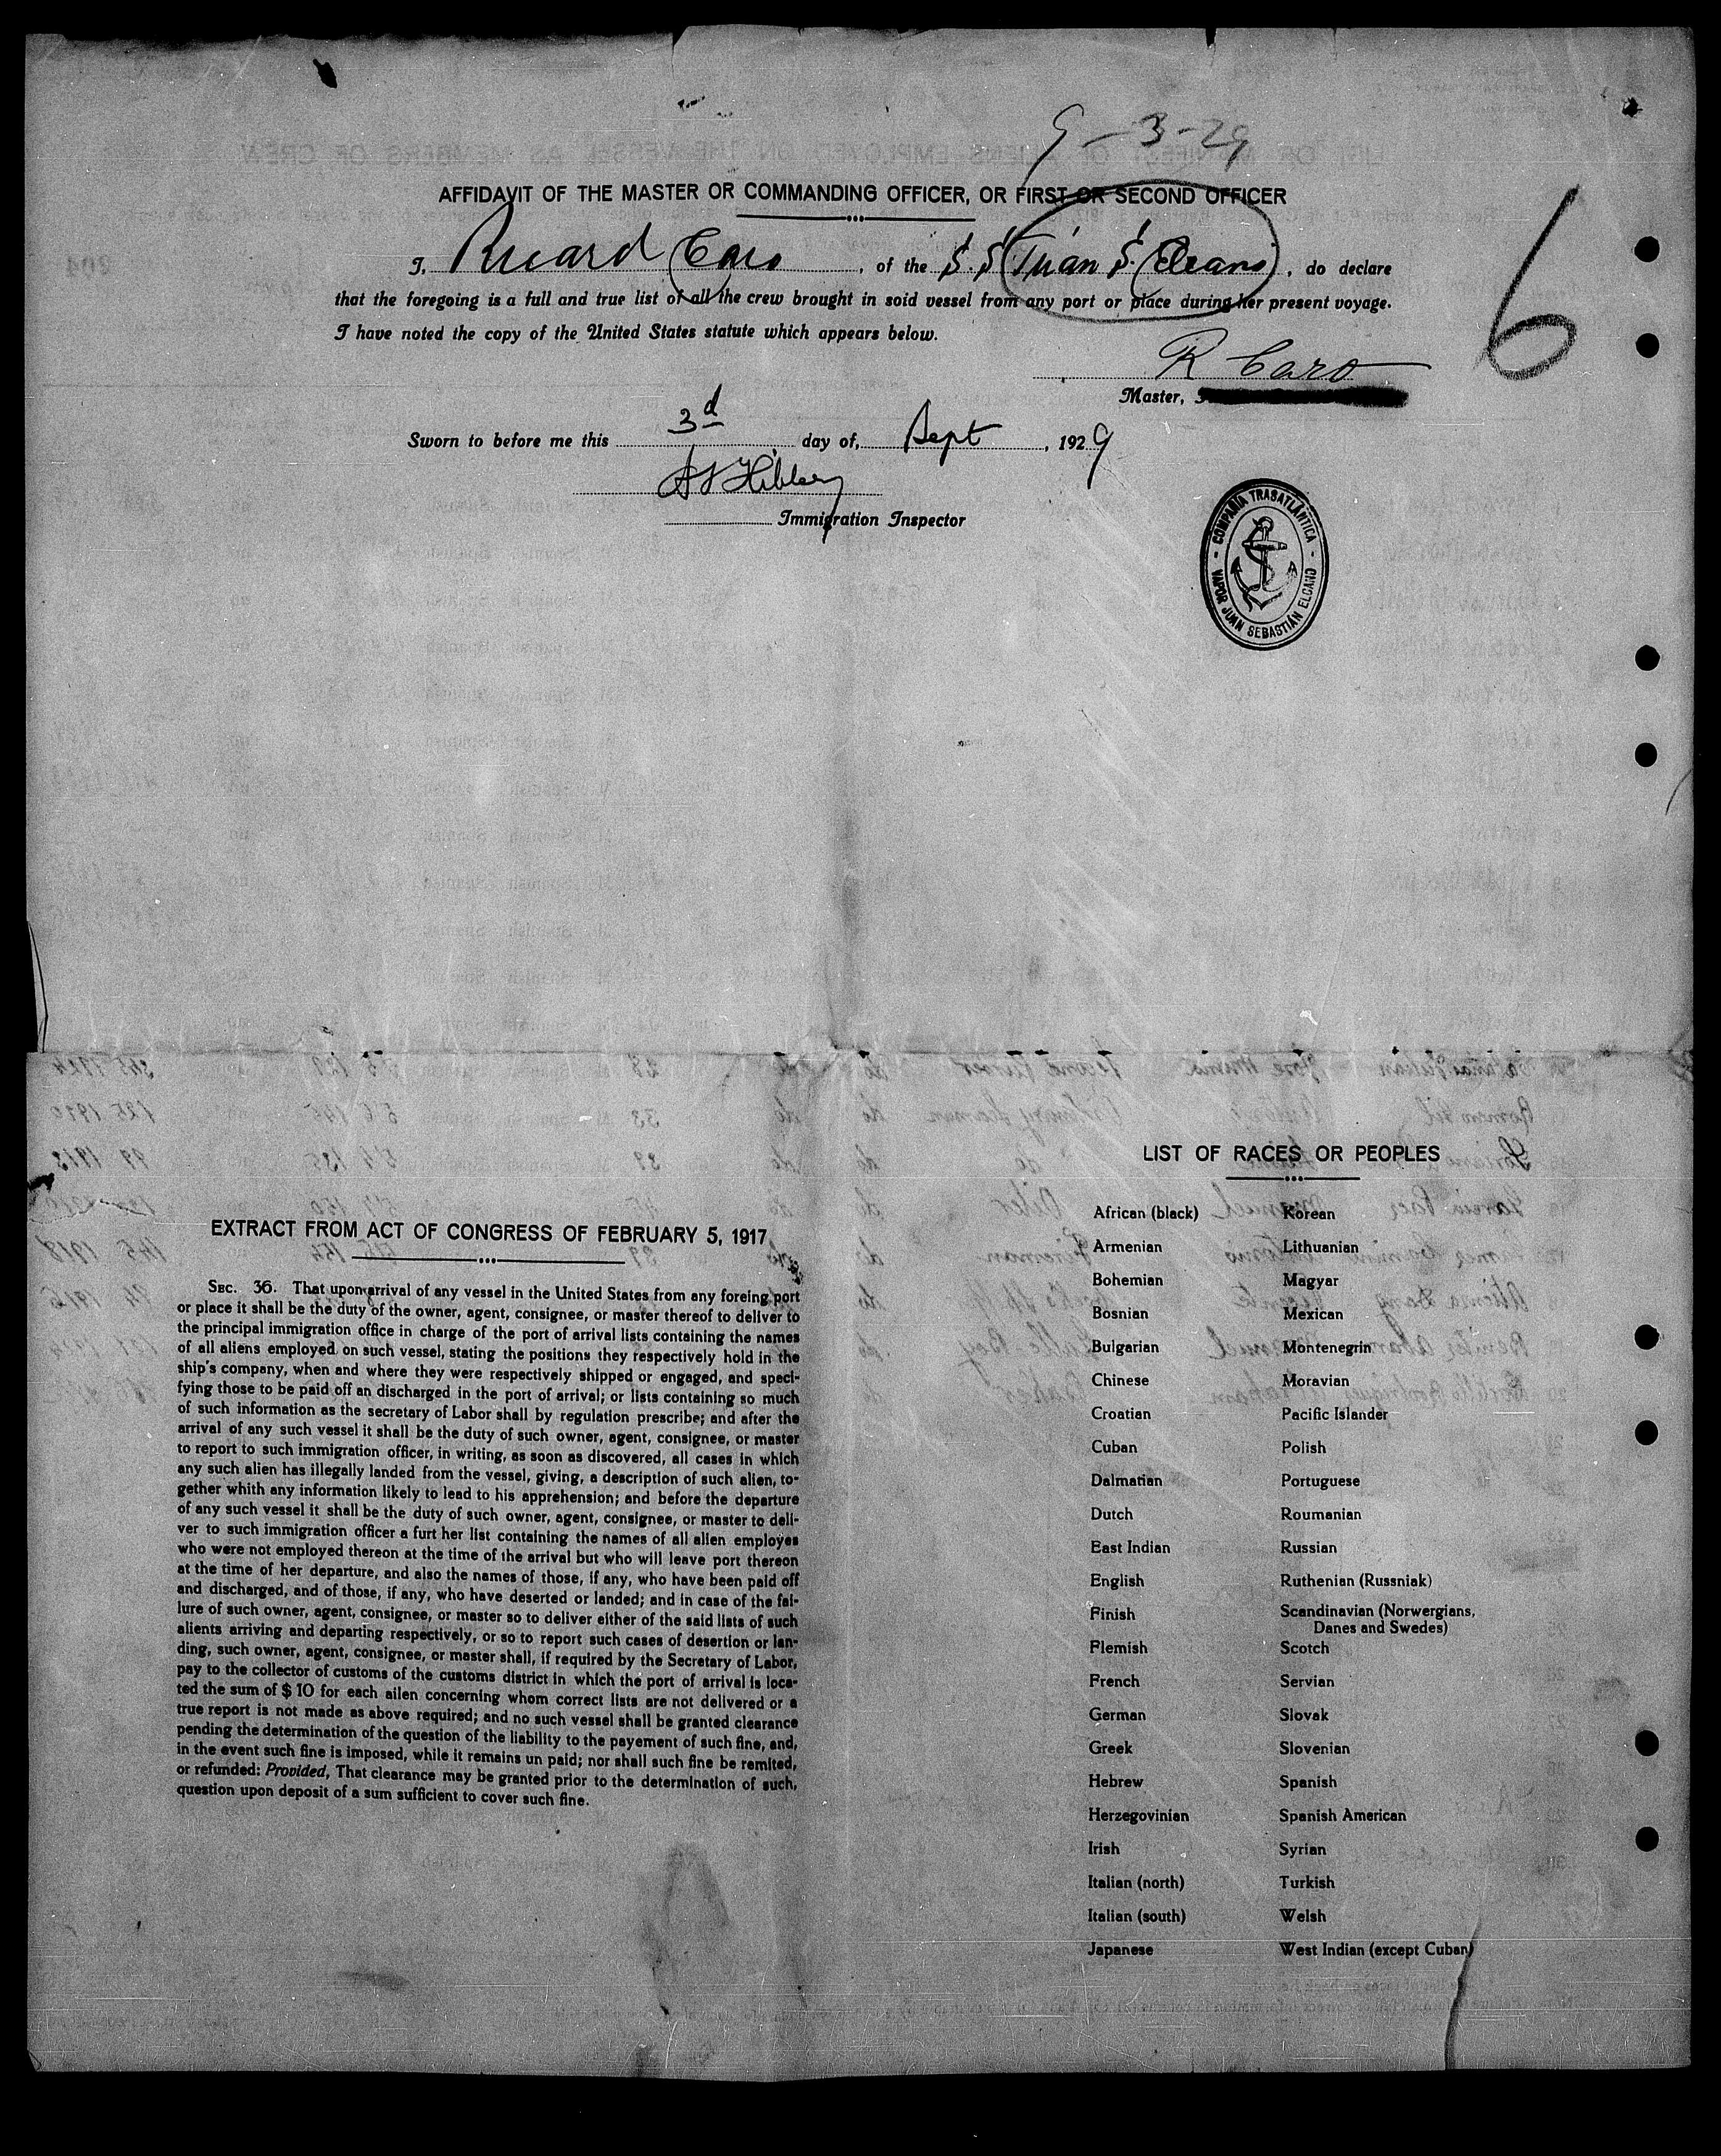 9-3-29
AFFIDAVIT OF THE MASTER OR COMMANDING OFFICER, OR FIRST OR SECOND OFFICER
I, Ricard Caro, of the S.S. Juan S. Elcano, do declare
that the foregoing is a full and true list of all the crew brought in soid vessel from any port or place during her present voyage.
I have noted the copy of the United States statute which appears below.
6
R Caro
Master,
Sworn to before me this 3d day of, Sept, 1929
Immigration Inspector
COMPAÑIA TRASATLÁNTICA
VAPOR JUAN SEBASTIÁN ELCANO
EXTRACT FROM ACT OF CONGRESS OF FEBRUARY 5, 1917
SEC. 36. That upon arrival of any vessel in the United States from any foreing port
or place it shall be the duty of the owner, agent, consignee, or master thereof to deliver to
the principal immigration office in charge of the port of arrival lists containing the names
of all aliens employed on such vessel, stating the positions they respectively hold in the
ship's company, when and where they were respectively shipped or engaged, and speci-
fying those to be paid off an discharged in the port of arrival; or lists containing so much
of such information as the secretary of Labor shall by regulation prescribe; and after the
arrival of any such vessel it shall be the duty of such owner, agent, consignee, or master
to report to such immigration officer, in writing, as soon as discovered, all cases in which
any such alien has illegally landed from the vessel, giving, a description of such alien, to-
gether whith any information likely to lead to his apprehension; and before the departure
of any such vessel it shall be the duty of such owner, agent, consignee, or master to deli-
ver to such immigration officer a furt her list containing the names of all alien employes
who were not employed thereon at the time of the arrival but who will leave port thereon
at the time of her departure, and also the names of those, if any, who have been paid off
and discharged, and of those, if any, who have deserted or landed; and in case of the fai-
lure of such owner, agent, consignee, or master so to deliver either of the said lists of such
alients arriving and departing respectively, or so to report such cases of desertion or lan-
ding, such owner, agent, consignee, or master shall, if required by the Secretary of Labor,
pay to the collector of customs of the customs district in which the port of arrival is loca-
ted the sum of $ 10 for each ailen concerning whom correct lists are not delivered or a
true report is not made as above required; and no such vessel shall be granted clearance
pending the determination of the question of the liability to the payement of such fine, and,
in the event such fine is imposed, while it remains un paid; nor shall such fine be remited,
or refunded: Provided, That clearance may be granted prior to the determination of such,
question upon deposit of a sum sufficient to cover such fine.
LIST OF RACES OR PEOPLES
African (black)
Armenian
Bohemian
Bosnian
Bulgarian
Chinese
Croatian
Cuban
Dalmatian
Dutch
East Indian
English
Finish
Flemish
French
German
Greek
Hebrew
Herzegovinian
Irish
Italian (north)
Italian (south)
Japanese
Korean
Lithuanian
Magyar
Mexican
Montenegrin
Moravian
Pacific Islander
Polish
Portuguese
Roumanian
Russian
Ruthenian (Russniak)
Scandinavian (Norwergians,
Danes and Swedes)
Scotch
Servian
Slovak
Slovenian
Spanish
Spanish American
Syrian
Turkish
Welsh
West Indian (except Cuban)